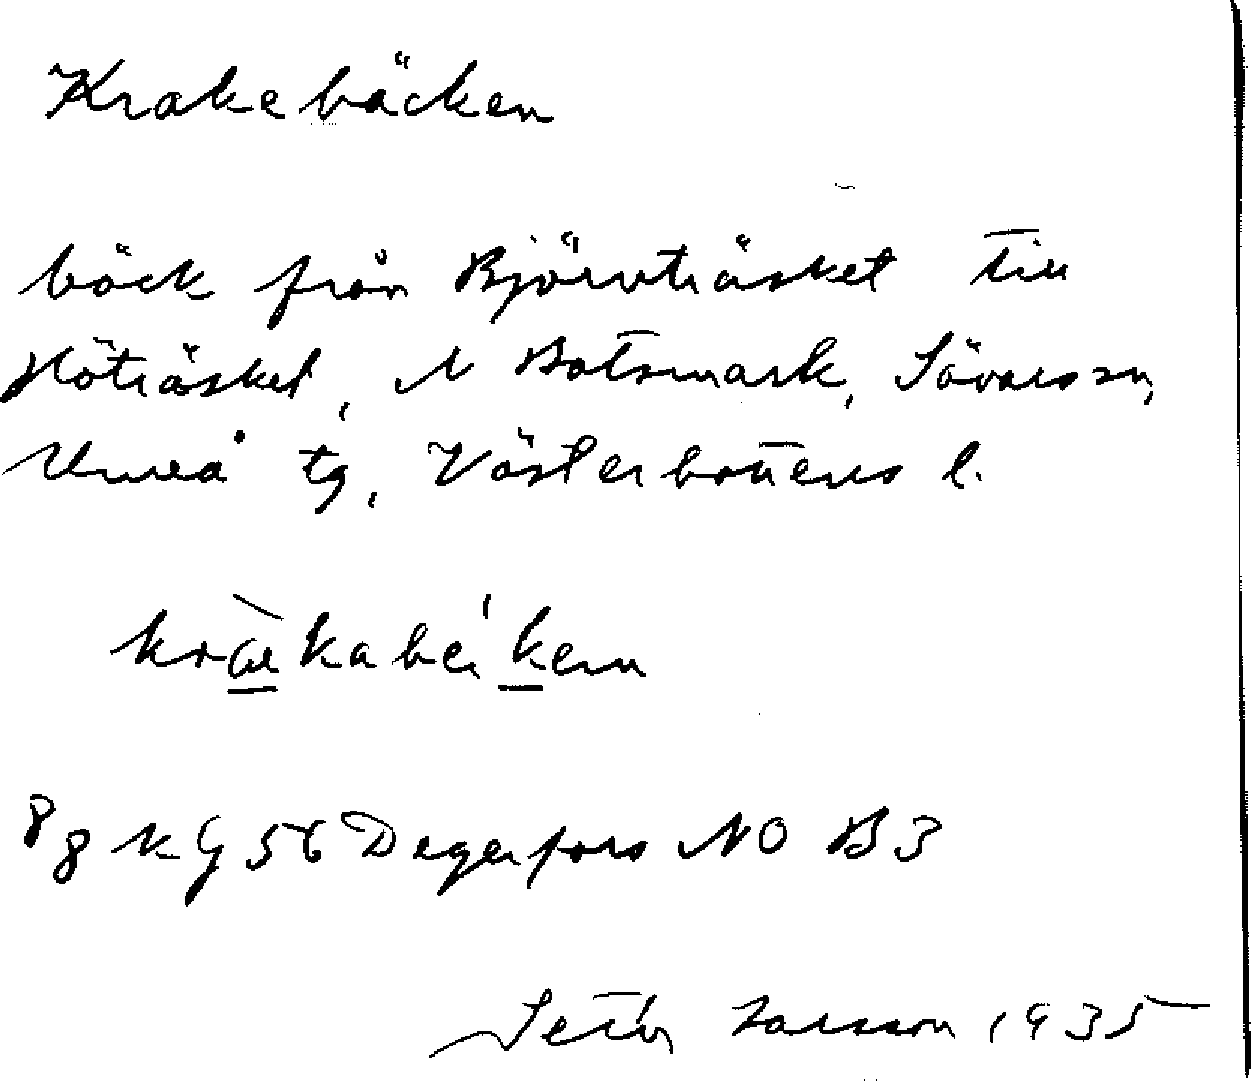 Krakebäcken
bäck från Björnträsket till
Höträsket, N Botsmark, Sävars sn,
Umeå tg, Västerbottens l.
kræ̀kabe'ken
8g KG 56 Degerfors NO B3
Seth Larsson 1935